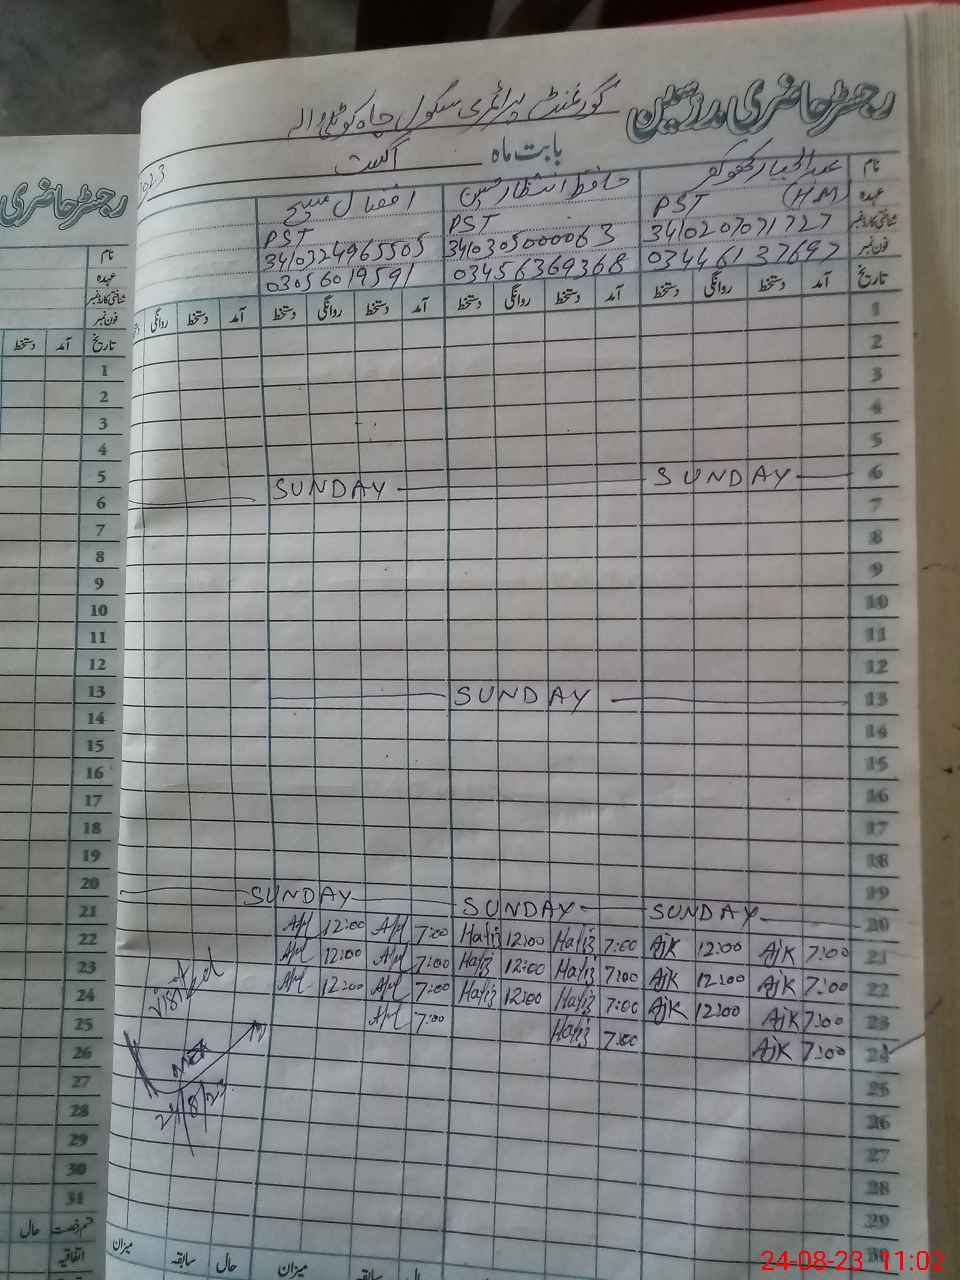 رجسٹر حاضری مدرسین گورنمنٹ پرائمری سکول چاہ کوٹلی والہ
بابت ماہ اگست
نام عبدالجبار کھوکھر حافظ انتظار حسین افضال مسیح
عہدہ PST (HM) PST PST
شناختی کارڈ نمبر 3410207071727 3410305000063 3410324965505
فون نمبر 03446137697 03456369368 03056019591
تاریخ آمد دستخط روانگی دستخط آمد دستخط روانگی دستخط آمد دستخط روانگی دستخط آمد دستخط روانگی
1
2
3
4
5
6 SUNDAY SUNDAY
7
8
9
10
11
12
13 SUNDAY
14
15
16
17
18
19
20 SUNDAY SUNDAY SUNDAY
21 7:00 AjK 12:00 AjK 7:00 Hafiz 12:00 Hafiz 7:00 Afl 12:00 Afl
22 7:00 AjK 12:00 AjK 7:00 Hafiz 12:00 Hafiz 7:00 Afl 12:00 Afl
23 7:00 AjK 12:00 AjK 7:00 Hafiz 12:00 Hafiz 7:00 Afl 12:00 Afl
24 7:00 AjK 7:00 Hafiz 7:00 Afl
25
26
27
28
29
30
visited
24/8/23
میزان سابقہ حال میزان سابقہ حال
رجسٹر حاضری
نام
عہدہ
شناختی کارڈ نمبر
فون نمبر
تاریخ آمد دستخط
1
2
3
4
5
6
7
8
9
10
11
12
13
14
15
16
17
18
19
20
21
22
23
24
25
26
27
28
29
30
31
قسم رخصت حال
اتفاقیہ
24-08-23 11:02